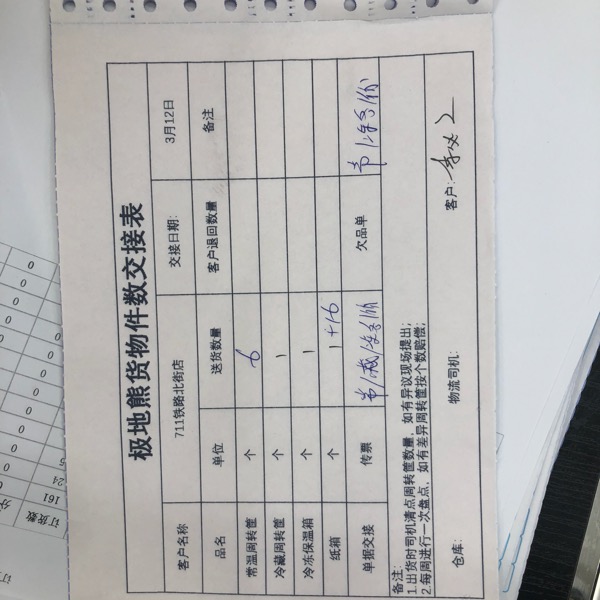 极地熊货物件数交接表
客户名称 711铁路北街店 交接日期: 3月12日
品名 单位 送货数量 客户退回数量 备注
常温周转筐 个 6
冷藏周转筐 个 1
冷冻保温箱 个 1
纸箱 个 1+16
单据交接 传票 欠品单
备注:
1.出货时司机清点周转筐数量，如有异议现场提出;
2.每周进行一次盘点，如有差异周转筐按个数赔偿;
仓库: 物流司机: 客户:
订货数
161
24
0
0
0
0
0